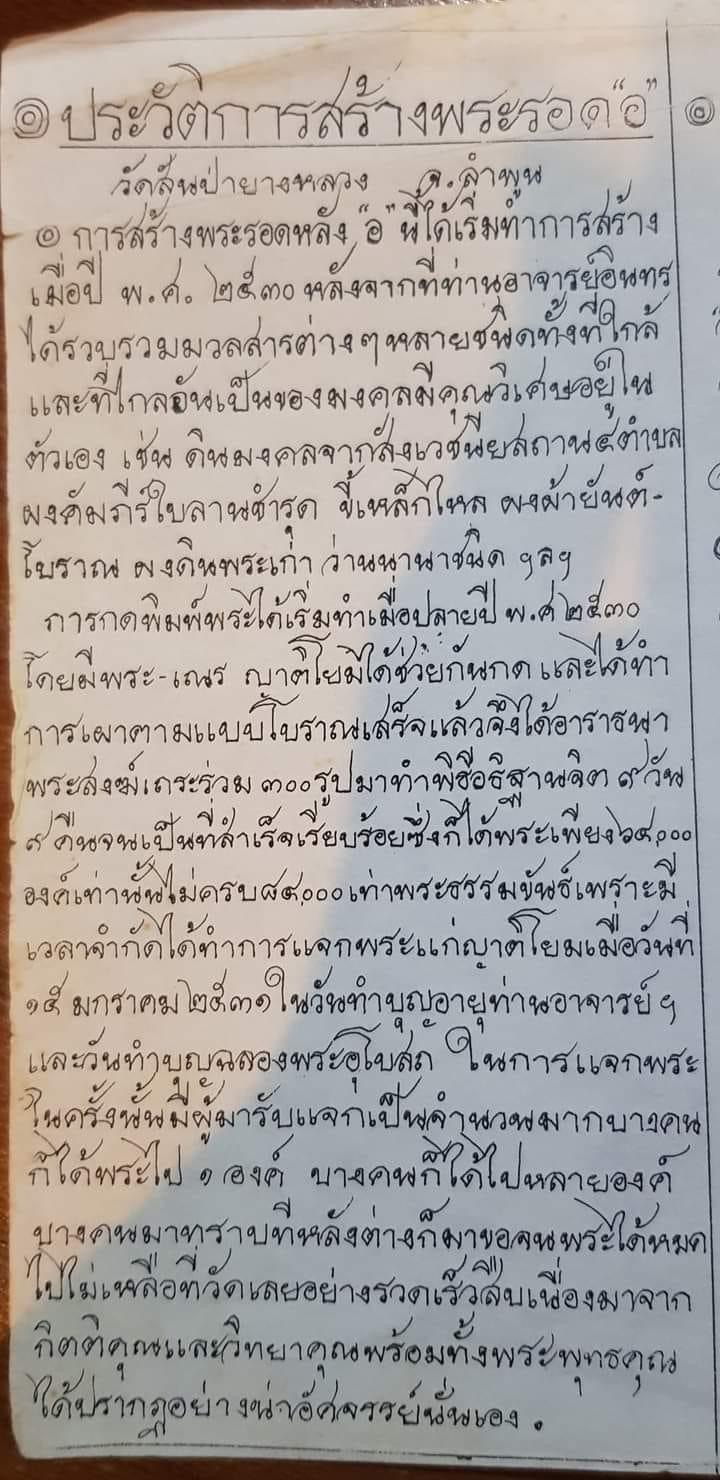 ๏ ประวัติการสร้างพระรอด"อ" ๏
วัดสันป่ายางหลวง จ.ลำพูน
๏ การสร้างพระรอดหลัง"อ"นี้ได้เริ่มทำการสร้าง
เมื่อปี พ.ศ. ๒๕๓๐ หลังจากที่ท่านอาจารย์อินทร
ได้รวบรวมมวลสารต่างๆหลายชนิดทั้งที่ใกล้
และที่ไกลอันเป็นของมงคลมีคุณวิเศษอยู่ใน
ตัวเอง เช่น ดินมงคลจากสังเวชนียสถาน๕ตำบล
ผงคัมภีร์ใบลานชำรุด ขี้เหล็กไหล ผงผ้ายันต์-
โบราณ ผงดินพระเก่า ว่านนานาชนิด ฯลฯ
การกดพิมพ์พระได้เริ่มทำเมื่อปลายปี พ.ศ ๒๕๓๐
โดยมีพระ-เณร ญาติโยมได้ช่วยกันกด และได้ทำ
การเผาตามแบบโบราณเสร็จแล้วจึงได้อาราธนา
พระสงฆ์เถระร่วม ๓๐๐รูปมาทำพิธีอธิฐานจิต ๙ วัน
๙ คืนจนเป็นที่สำเร็จเรียบร้อยซึ่งก็ได้พระเพียง๖๔,๐๐๐
องค์เท่านั้นไม่ครบ๘๔,๐๐๐เท่าพระธรรมขันธ์เพราะมี
เวลาจำกัดได้ทำการแจกพระแก่ญาติโยมเมื่อวันที่
๑๕ มกราคม ๒๕๓๑ ในวันทำบุญอายุท่านอาจารย์ ฯ
และวันทำบุญฉลองพระอุโบสถ ในการแจกพระ
ในครั้งนั้นมีผู้มารับแจกเป็นจำนวนมากบางคน
ก็ได้พระไป ๑ องค์ บางคนก็ได้ไปหลายองค์
บางคนมาทราบทีหลังต่างก็มาขอจนพระได้หมด
ไปไม่เหลือที่วัดเลยอย่างรวดเร็วสืบเนื่องมาจาก
กิตติคุณและวิทยาคุณพร้อมทั้งพระพุทธคุณ
ได้ปรากฏอย่างน่าอัศจรรย์นั่นเอง.